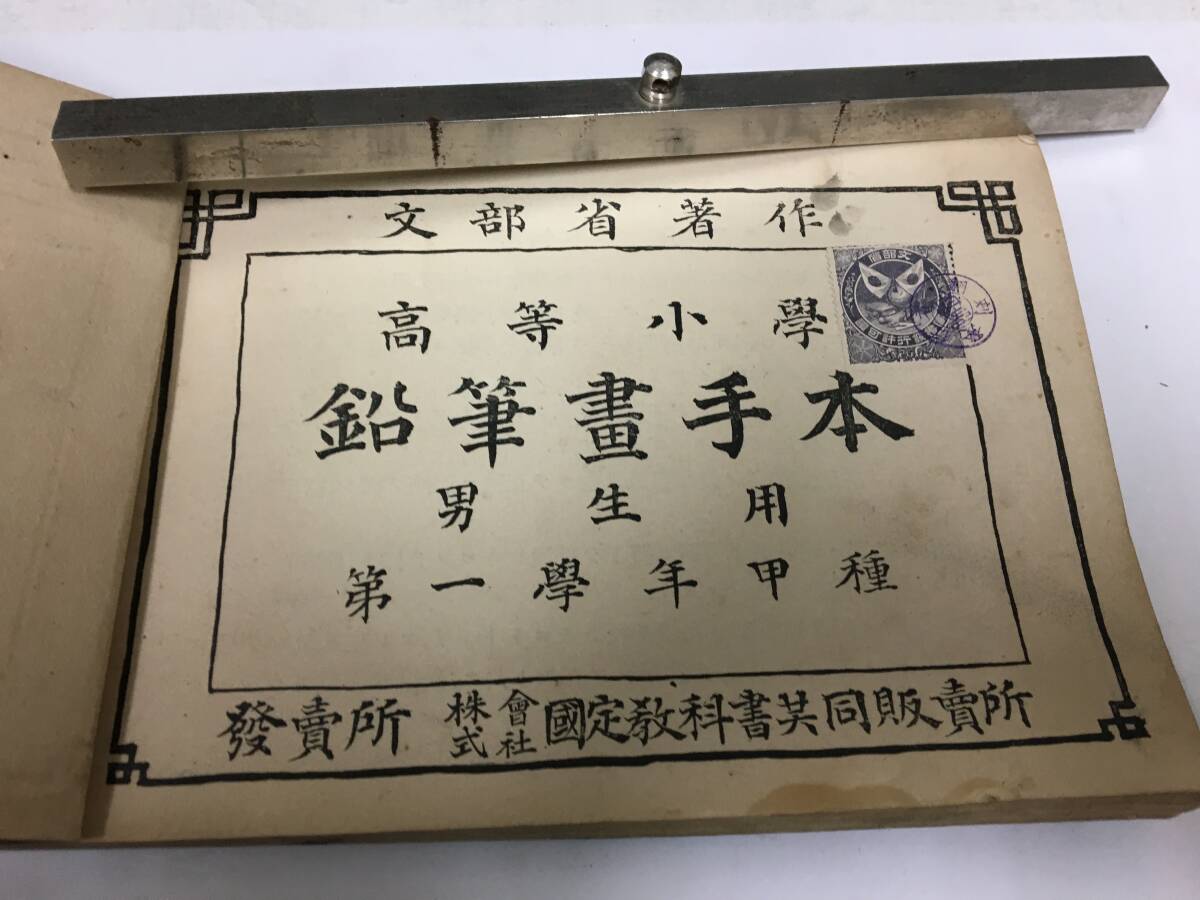 文部省著作
高等小學
鉛筆畫手本
男生用
第一學年甲種
發賣所 株式會社 國定教科書共同販賣所
文部省
發行許可證